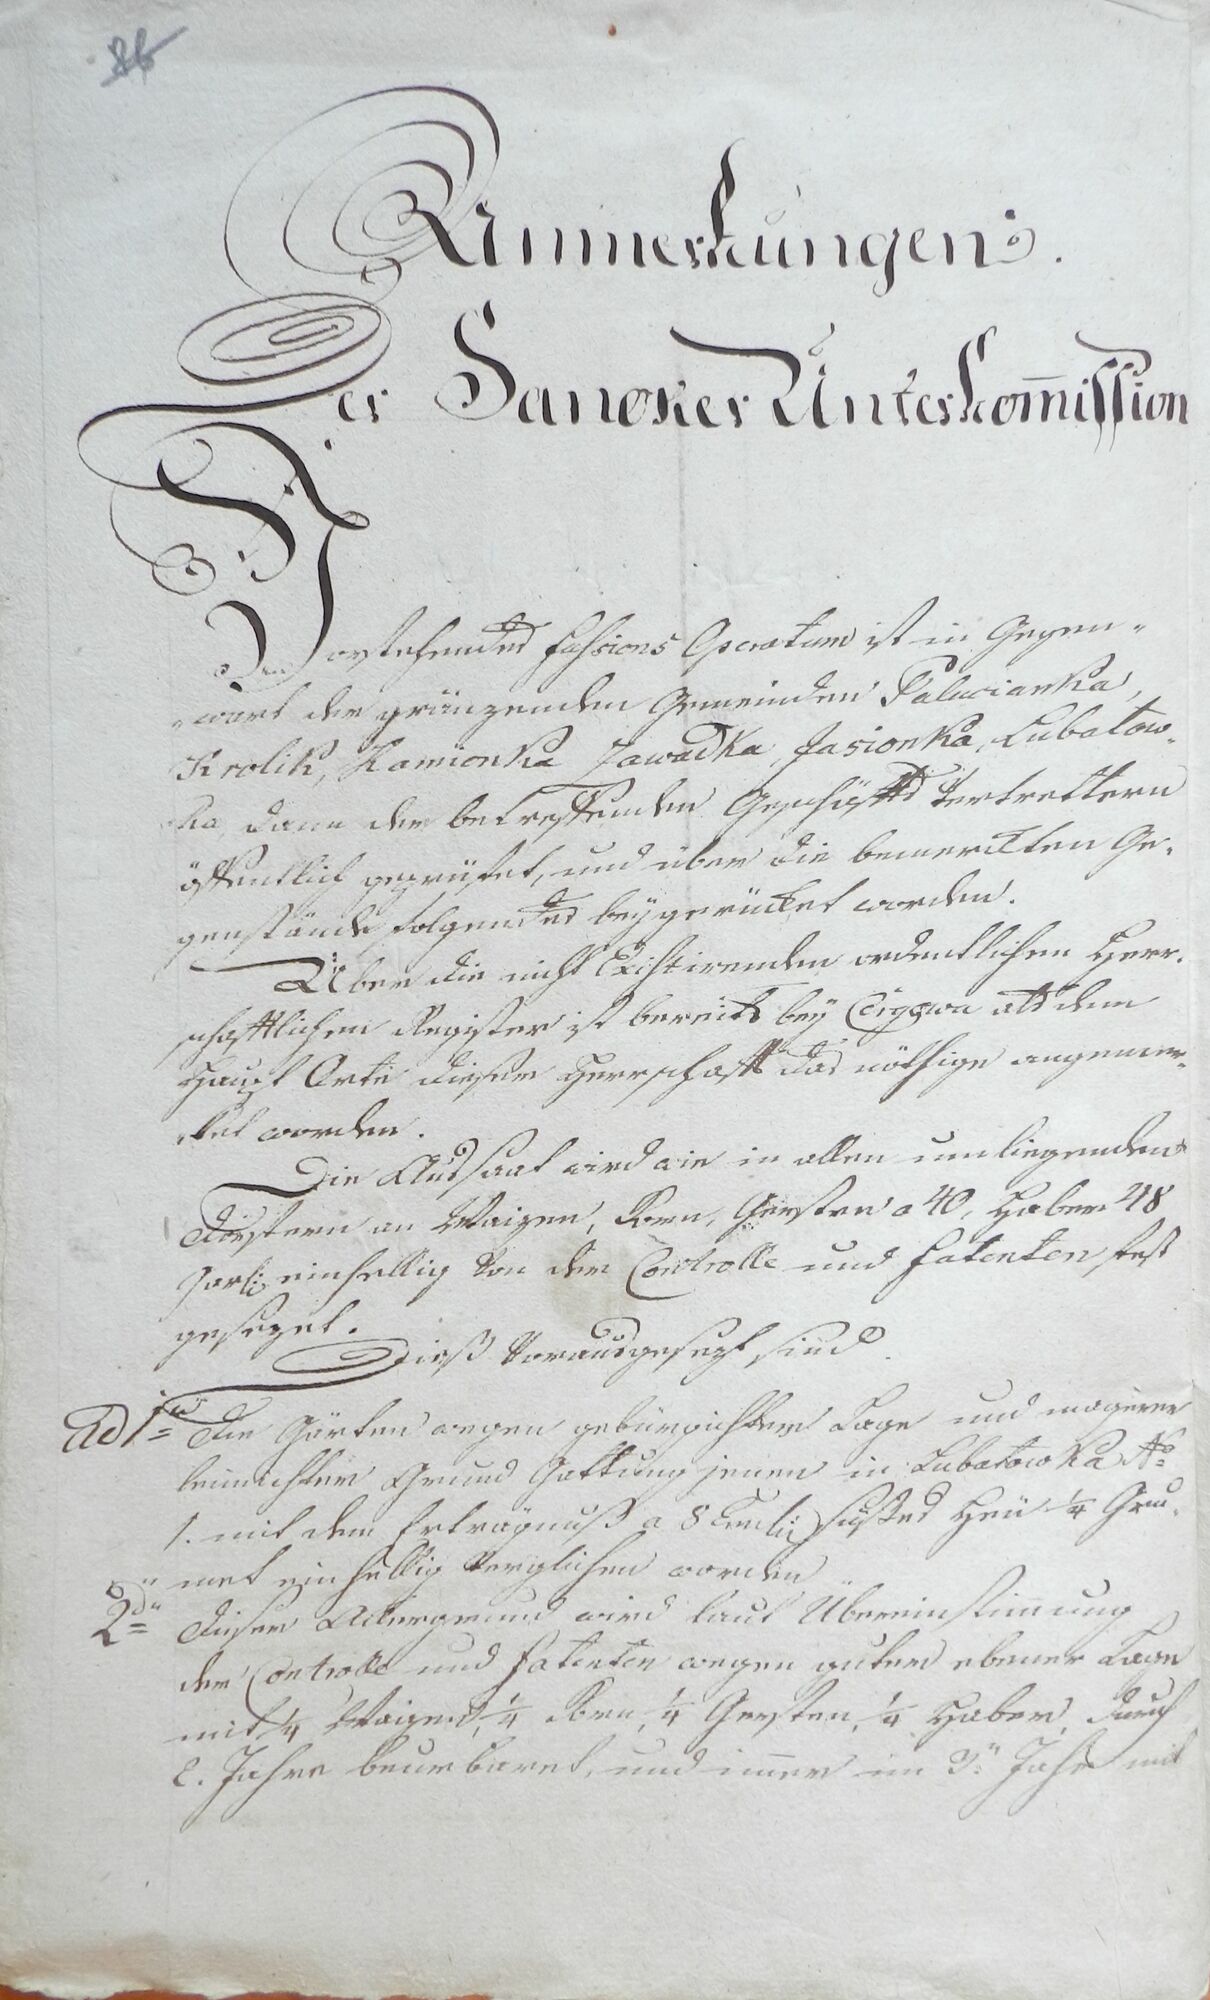 Anmerkungen.
Der Sanoker Unterkom̄ission
Vorstehendes Fassions Operatum ist in Gegen-
wart der gränzenden Gemeinden Palucianka,
Krolik, Kamionka Zawadka, Jasionka, Lubatow-
ka, dann der betreffenden Geschäfts Vertrettern
öffentlich geprüfet, und über die bemerckten Ge-
genstände folgendes beygerücket worden.
Über die nicht Existirenden ordentlichen Herr-
schaftlichen Register ist bereits bey als dem
Haupt Orte dieser Herrschaft das nöthige angemer-
ket worden.
Die Aussaat wird wie in allen umliegenden
Dörfern an Waizen, Korn, Gersten a 40, Haber 48
Garz: einhellig von der Controlle und Fatenten fest
gesezet.
Dieß Vorausgesezt sind
Ad 1 Die Gärten wegen gebürgichter Lage und magerer
leimichter Grund Gattung jenen in Lubatowka No
1. mit dem Erträgnuß a 8 süßes Heu 1/4 Gru-
met einhellig verglichen worden
2 Dieser Ackergrund wird laut Übereinstimmung
der Controlle und Fatenten wegen guter ebener Lage
mit 1/4 Waizen, 1/4 Korn, 1/4 Gersten, 1/4 Haber, durch
2. Jahre beurbaret, und im̄er im 3n Jahr mit